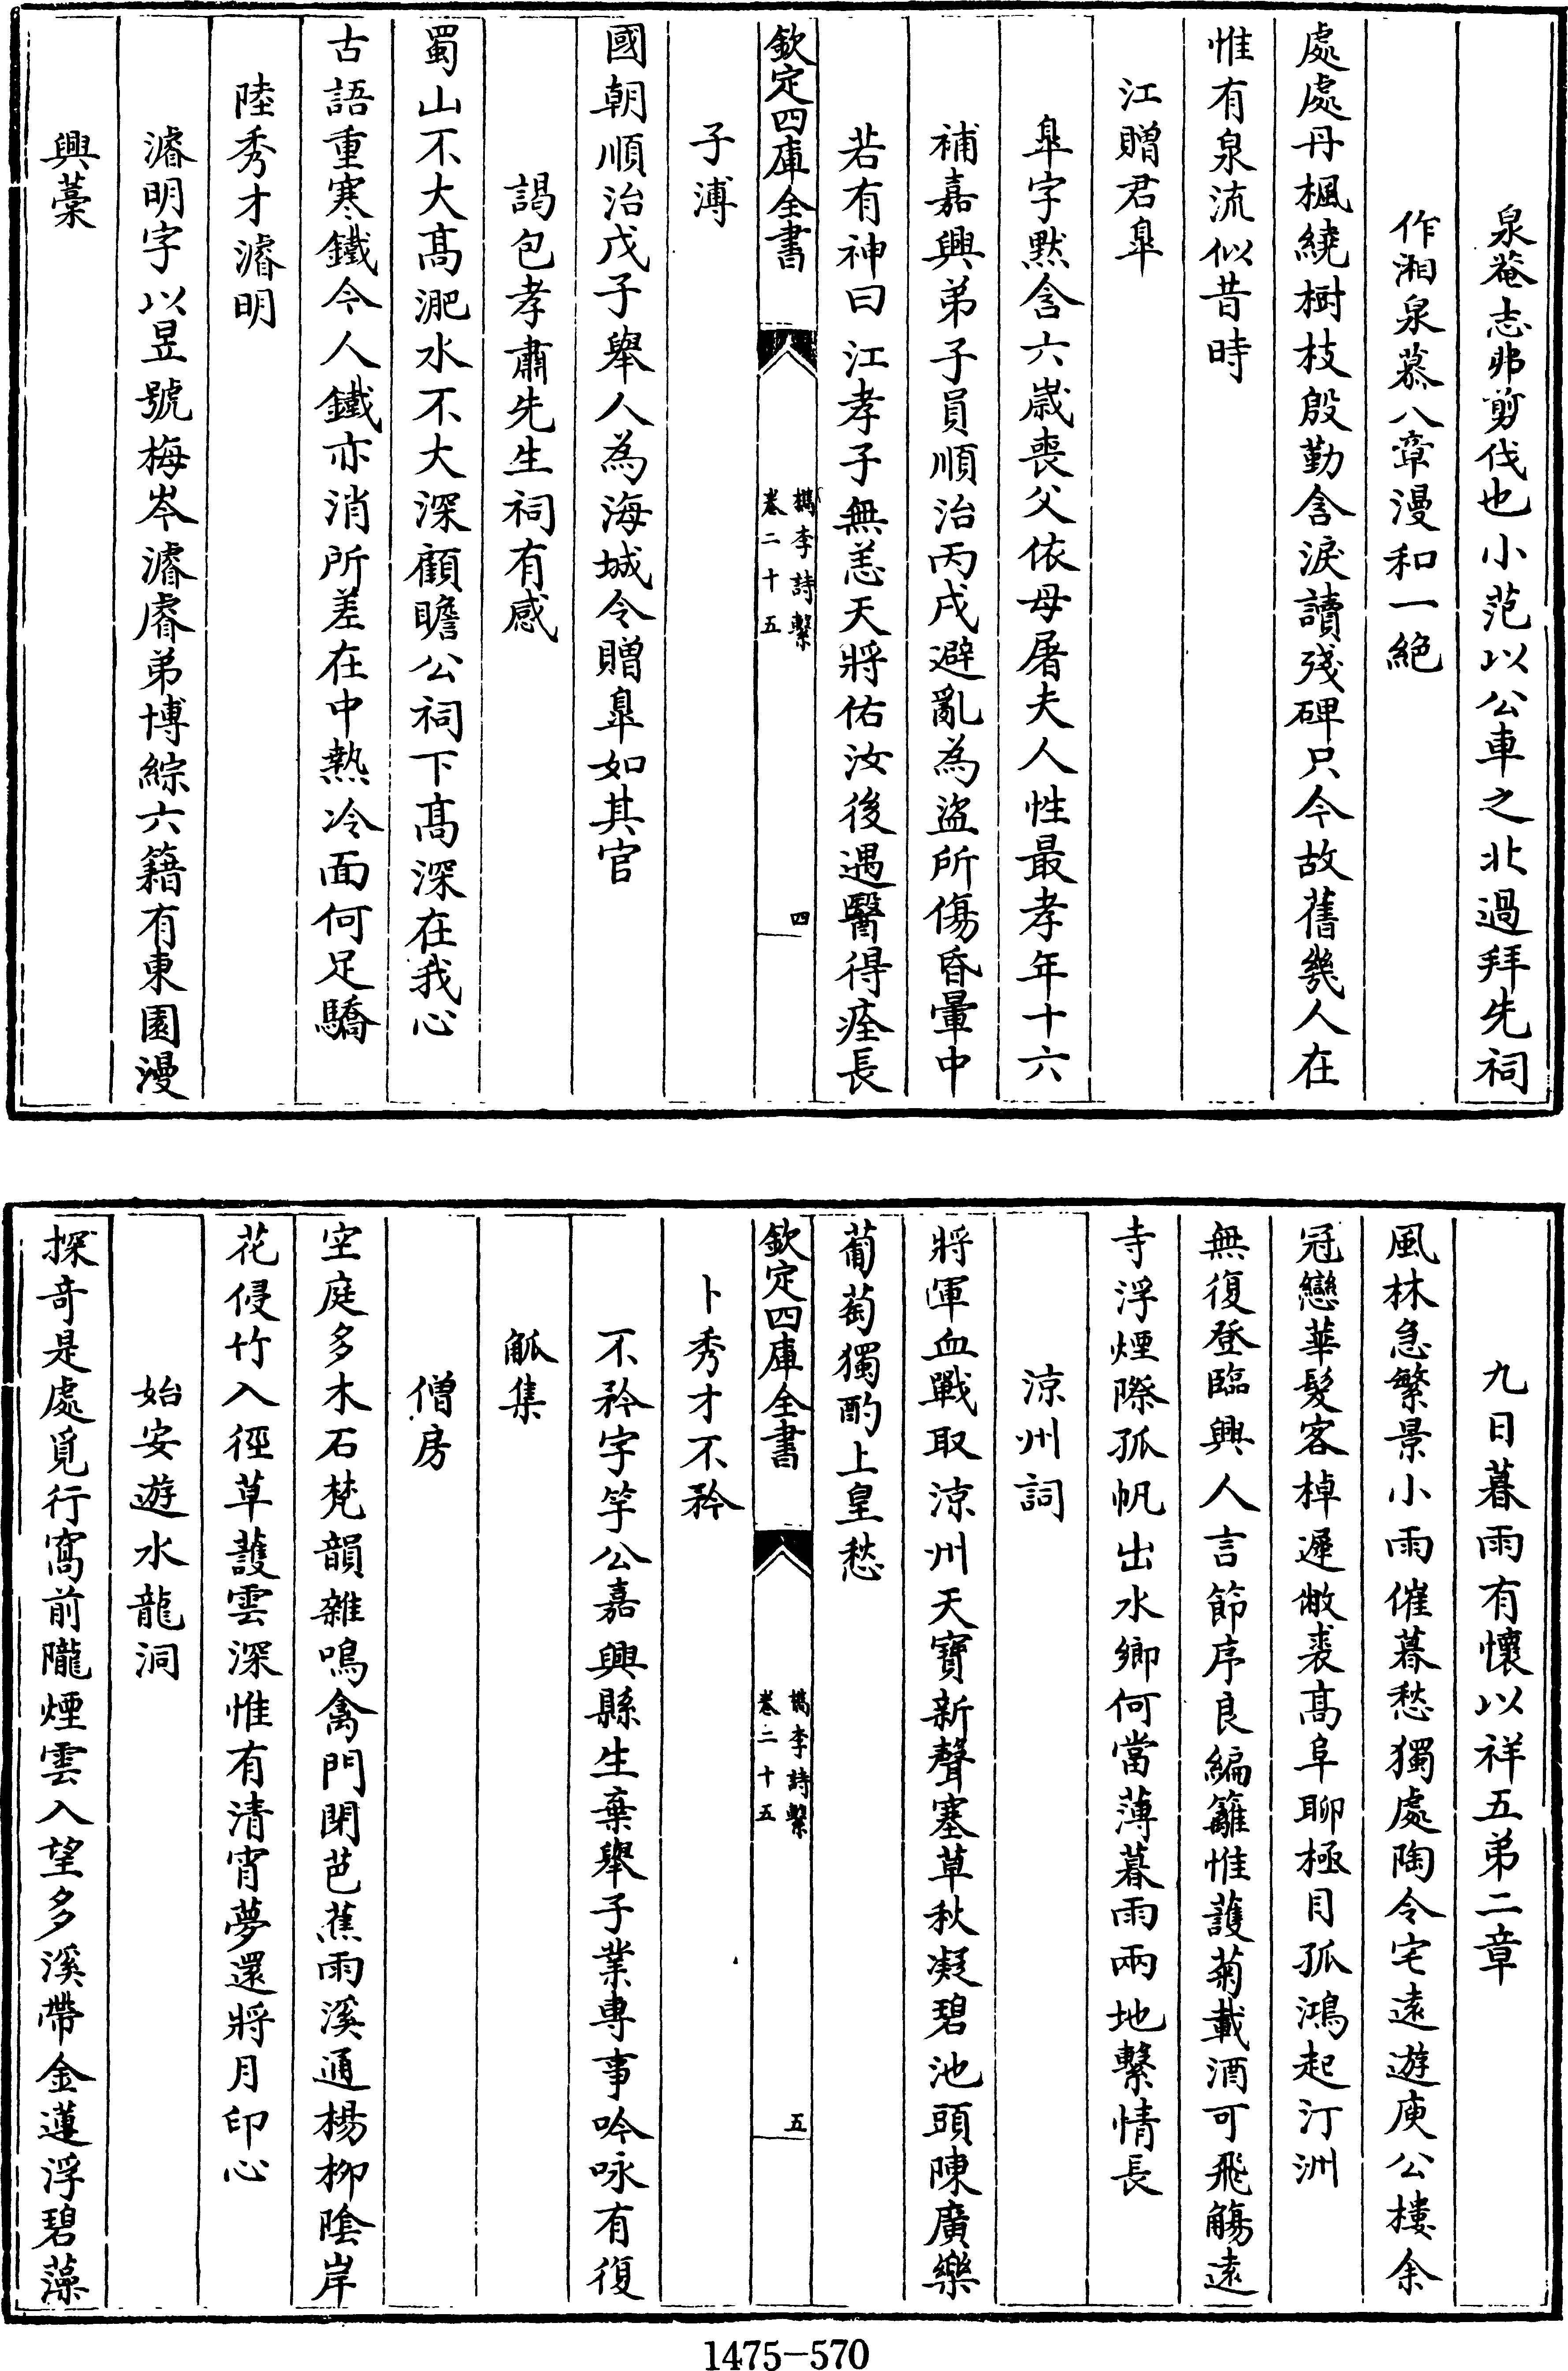 泉菴志弗剪伐也小范以公車之北過拜先祠
作湘泉慕八章漫和一絶
處處丹楓繞樹枝殷勤含淚讀殘碑只今故舊幾人在
惟有泉流似昔時
江贈君臯
臯字黙含六歲喪父依母屠夫人性最孝年十六
補嘉興弟子員順治丙戌避亂為盜所傷昏暈中
若有神曰江孝子無恙天將佑汝後遇醫得痊長
欽定四庫全書
檇李詩繫
卷二十五
四
子溥
國朝順治戊子舉人為海城令贈臯如其官
謁包孝肅先生祠有感
蜀山不大高淝水不大深顧瞻公祠下高深在我心
古語重寒鐵今人鐵亦消所差在中熱冷面何足驕
陸秀才濬明
濬明字以昱號梅岑濬睿弟博綜六籍有東園漫
興藁
九日暮雨有懷以祥五弟二章
風林急繁景小雨催暮愁獨處陶令宅遠遊庾公樓余
冠戀華髮客棹遲敝裘高阜聊極目孤鴻起汀洲
無復登臨興人言節序良編籬惟護菊載酒可飛觴遠
寺浮煙際孤帆出水鄉何當薄暮雨兩地繫情長
涼州詞
將軍血戰取涼州天寶新聲塞草秋凝碧池頭陳廣樂
葡萄獨酌上皇愁
欽定四庫全書
檇李詩繫
卷二十五
五
卜秀才不矜
不矜字竽公嘉興縣生棄舉子業專事吟咏有復
觚集
僧房
空庭多木石梵韻雜鳴禽門閉芭蕉雨溪通楊柳陰岸
花侵竹入徑草護雲深惟有清宵夢還將月印心
始安遊水龍洞
探奇是處覓行窩前隴煙雲入望多溪帶金蓮浮碧藻
1475-570